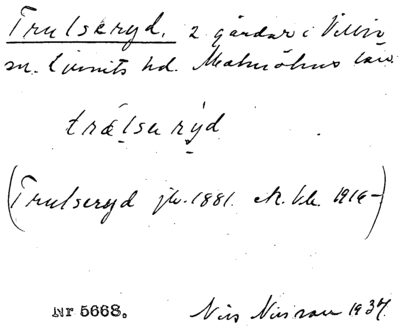 Trulseryd. 2 gårdar i Villie
sn. Ljunits hd. Malmöhus län.
trælsarýd
(Trulseryd jbr. 1881. ek. kb. 1916-)
Nr 5668. Nils Nilsson 1937.